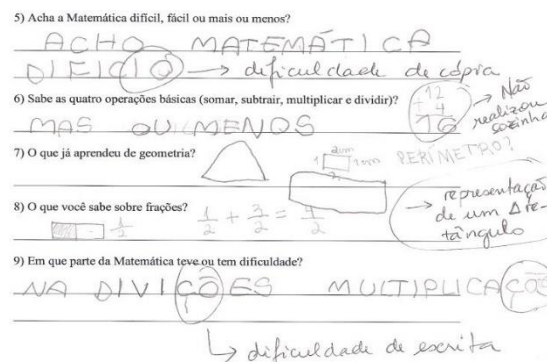 5) Acha a Matemática difícil, fácil ou mais ou menos?
ACHO MATEMÁTICA
DIFICIO → dificuldade de cópia
6) Sabe as quatro operações básicas (somar, subtrair, multiplicar e dividir)?
MAS OU MENOS
12
+ 4
16
→ Não
realizou
sozinho
7) O que já aprendeu de geometria?
PERÍMETRO?
8) O que você sabe sobre frações?
1/2
1/2 + 3/2 = 4/2
→ representação
de um Δ re-
tângulo
9) Em que parte da Matemática teve ou tem dificuldade?
NA DIVIÇÕES MULTIPLICAÇÃ
↳ dificuldade de escrita